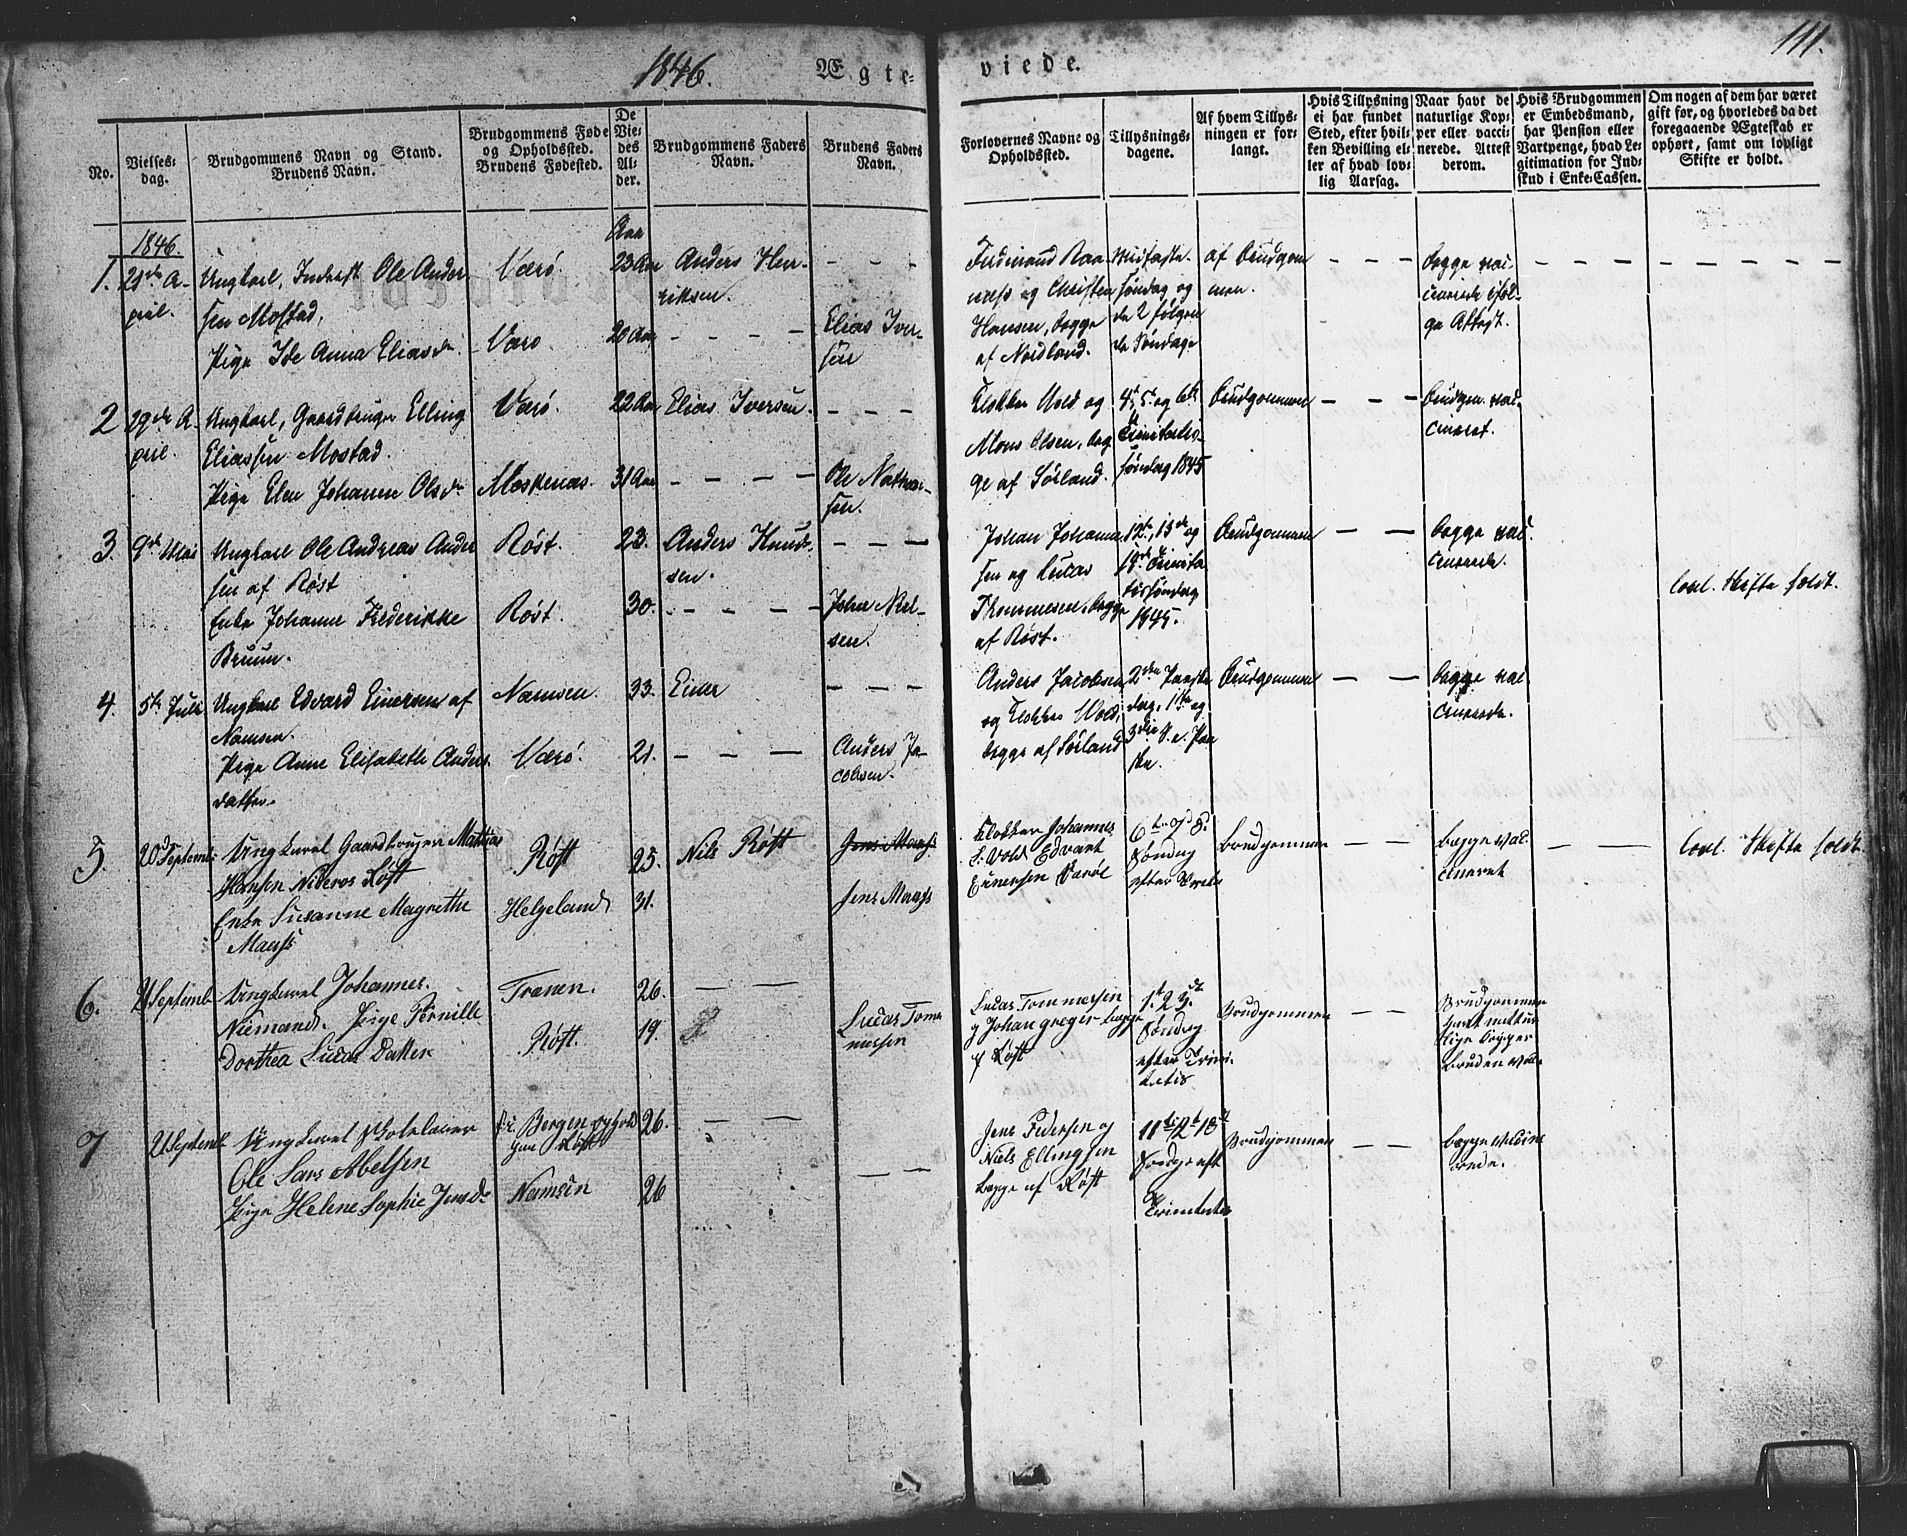 1846. Ægte-
viede. 111.
No.
Vielses-
dag.
Brudgommens Navn og Stand.
Brudens Navn.
Brudgommens Føde
og Opholdssted.
Brudens Fødested.
De
Vie-
des
Al-
der.
Brudgommens Faders
Navn.
Brudens Faders
Navn.
Forlovernes Navne og
Opholdssted.
Tillysnings-
dagene.
Af hvem Tillys-
ningen er for-
langt.
Hvis Tillysning
ei har fundet
Sted, efter hvil-
ken Bevilling el-
ler af hvad lov-
lig Aarsag.
Naar havt de
naturlige Kop-
per eller vacci-
nerede. Attest
derom.
Hvis Brudgommen
er Embedsmand,
har Pension eller
Vartpenge, hvad Le-
gitimation for Ind-
skud i Enke-Cassen.
Om nogen af dem har været
gift før, og hvorledes da det
foregaaende Ægteskab er
ophørt, samt om lovligt
Skifte er holdt.
1846.
Aar
1. 21de A-
pril.
Ungkarl, Inderst Ole Ander-
sen Mostad,
Pige Ide Anna Eliasdr.
Værø.
Værø
23 Aar
20 Aar
Anders Hen-
riksen.
Elias Iver-
sen
Ferdinand Raa-
næss og Christen
Hansen, begge
af Nordland.
Midfaste-
søndag og
de 2 følgen-
de Søndage
af Brudgom-
men.
begge vac-
cinerede iføl-
ge Attest.
2 29de A-
pril.
Ungkarl, Gaardbruger Elling
Eliassen Mostad.
Pige Elen Johanna Olsdr
Værø.
Moskenæs.
22 Aar
31 Aar
Elias Iversen.
Ole Nathan-
sen.
Klokker Vold og
Mons Olsen, beg-
ge af Sørland.
4de, 5te og 6te
Trinitatis-
søndag 1845
Brudgommen
Brudgom. vac-
cineret.
3. 9de Mai
Ungkarl Ole Andreas Ander
sen af Røst
Enke Johanna Frederikke
Bruun.
Røst.
Røst.
23.
30.
Anders Knud-
sen.
John Niel-
sen.
Johan Johann-
sen og Lucas
Thommesen, begge
af Røst.
12te, 13de og
Trinita-
tissøndag
1845.
Brudgommen
begge vac-
cinerede.
Lovl. Skifte holdt.
4. 5te Juli
Ungkarl Edvard Einersen af
Namsen.
Pige Anne Elisabeth Anders-
datter.
Namsen.
Værø.
33.
21.
Einer
Anders Ja-
cobsen.
Anders Jacobsen
og Klokker Vold,
begge af Sørland
2den Paaske
dag, 1ste og
3die S. e. Paa
ske.
Brudgommen
begge vac-
cinerede.
5. 20 Septemb:
Ungkarl Gaardbruger Mathias
Hansen Nileros Røst
Enke Susanne Magrethe
Maass
Røst
Helgeland
25.
31.
Nils Røst
Jens Maass
Jens Maass
Klokker Johannes
L. Vold Edvart
Einersen Værøe
6te og 8.
Søndag
efter
Brudgommen
begge vac-
cineret
Lovl. Skifte holdt.
6. 21 Septemb.
Ungkarl Johannes
Niemand. Pige Pernille
Dorthea Lucas Datter
Trænen.
Røst.
26.
19.
Lucas Tom
mesen
Lucas Tommesen
og Johan greger begge
af Røst
1st. 2 3de
Søndag
efter Trini-
tatis
Brudgommen
Brudgommen
havt natur
lige kopper
bruden vac:
7 21 Septemb.
Ungkarl Skolelærer
Ole Lars Abelsen
Pige Helene Sophie Jensdr
Bergen ophold
Røst
Namsen
26.
26
Jens Pedersen og
Niels Ellingsen
begge af Røst
11te 12te 13de
Søndag eft
Trinitatis
Brudgommen
begge vaccine
rede.